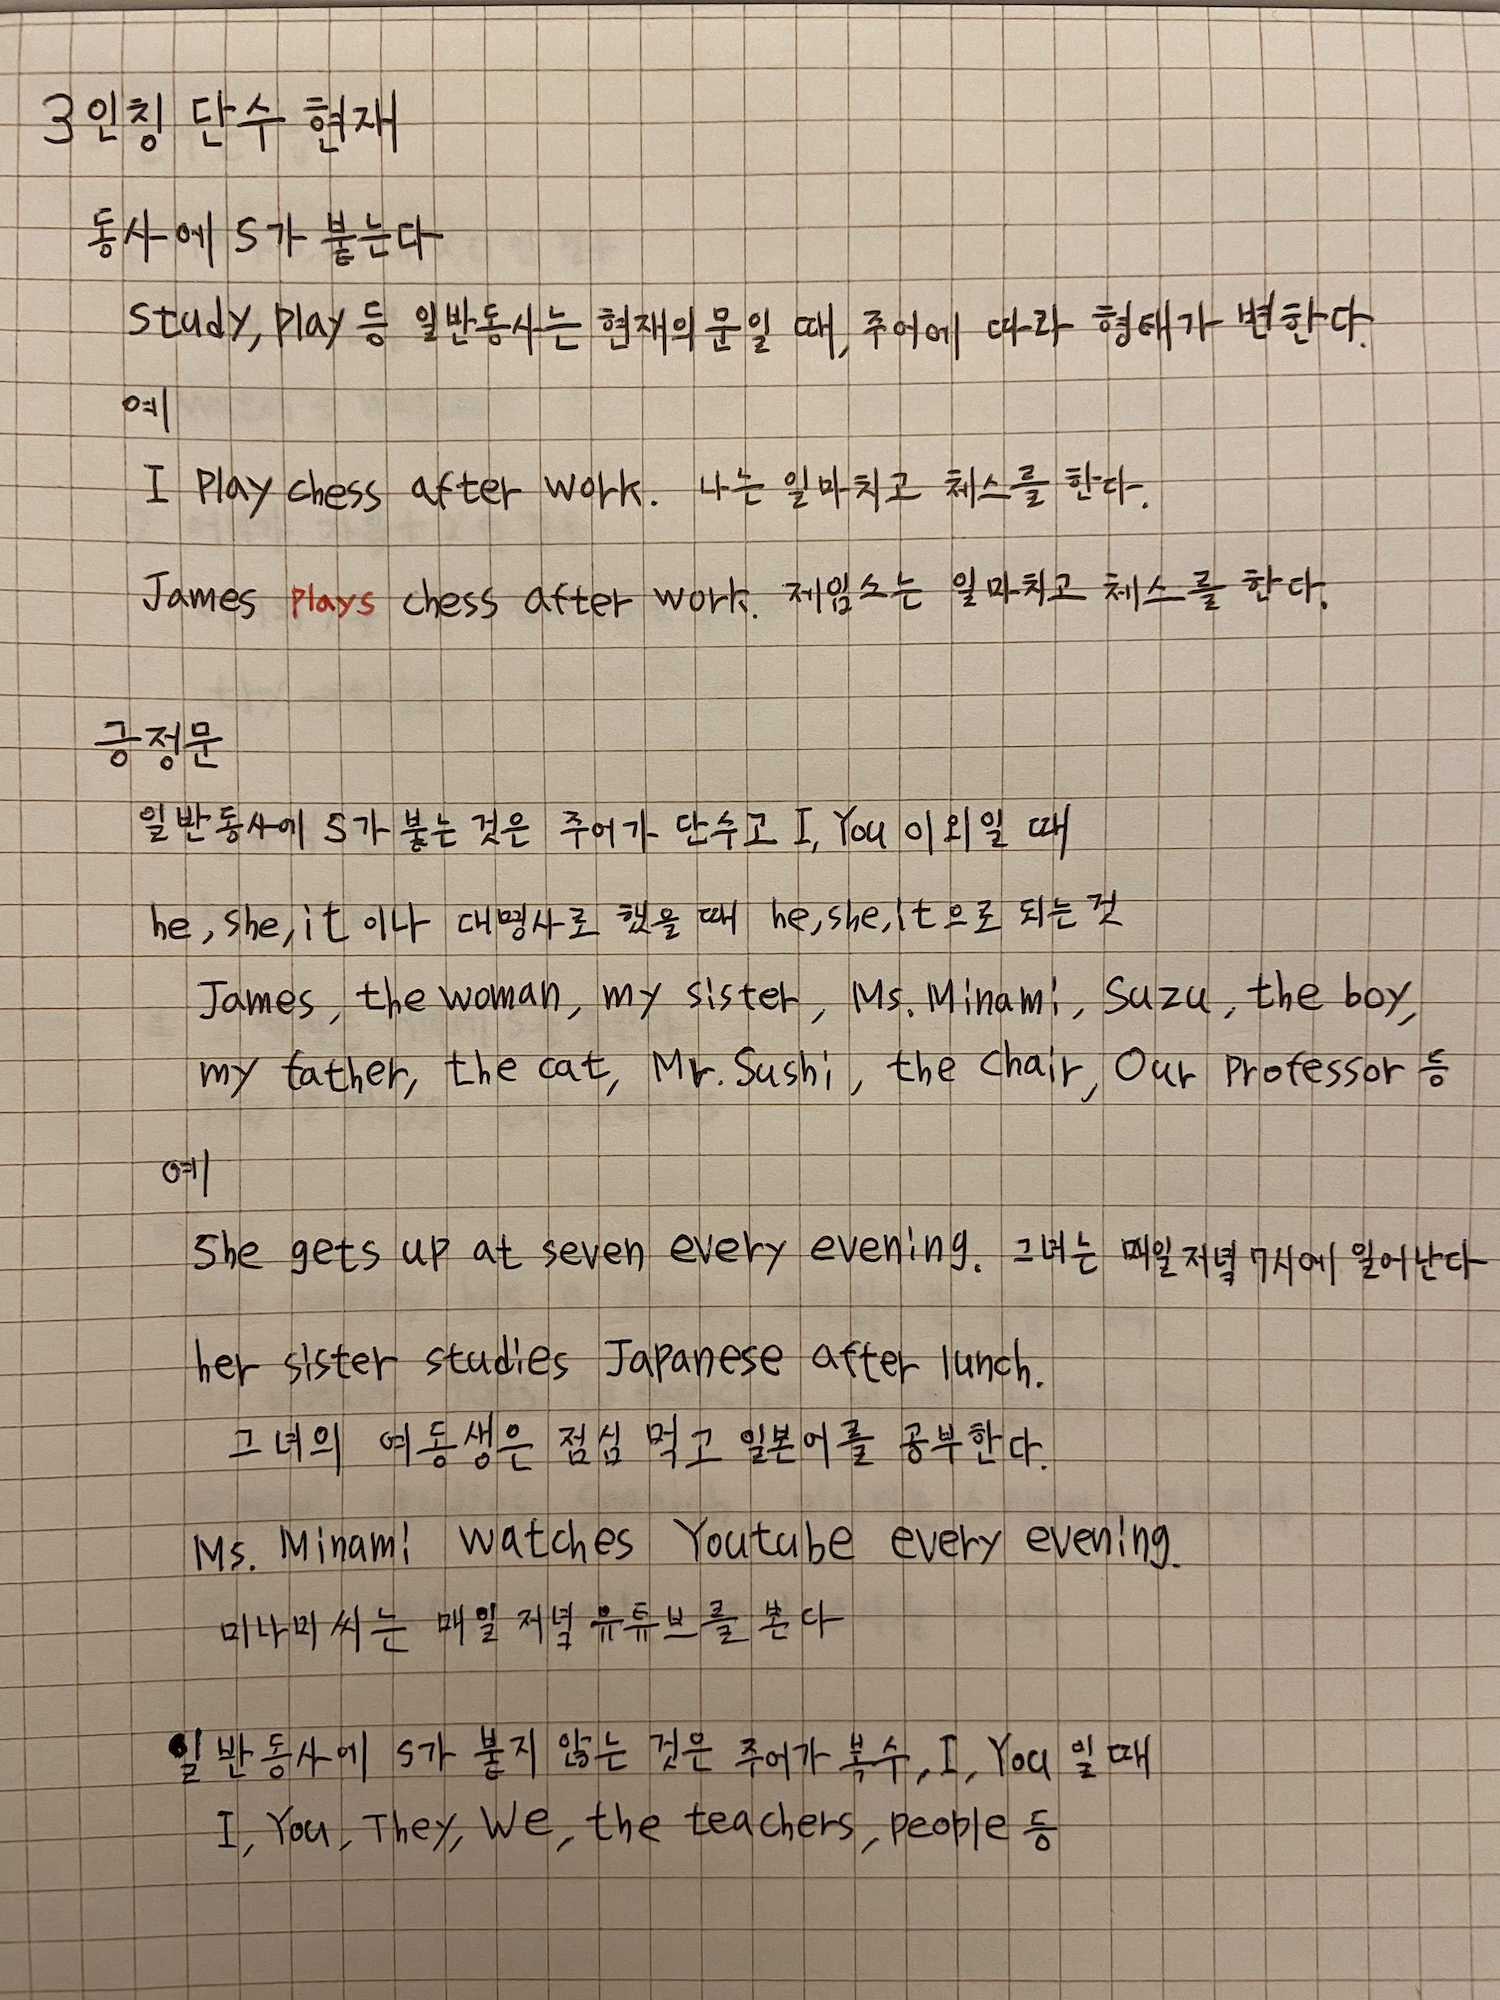 3인칭 단수 현재
동사에 s가 붙는다
study, play 등 일반동사는 현재의 문일 때, 주어에 따라 형태가 변한다.
예
I play chess after work. 나는 일마치고 체스를 한다.
James plays chess after work. 제임스는 일마치고 체스를 한다.
긍정문
일반동사에 s가 붙는 것은 주어가 단수고 I, You 이외일 때
he, she, it 이나 대명사로 했을 때 he, she, it으로 되는 것
James, the woman, my sister, Ms. Minami, Suzu, the boy,
my father, the cat, Mr. Sushi, the chair, Our professor 등
예
She gets up at seven every evening. 그녀는 매일 저녁 7시에 일어난다
her sister studies Japanese after lunch.
그녀의 여동생은 점심 먹고 일본어를 공부한다.
Ms. Minami watches Youtube every evening.
미나미씨는 매일 저녁 유튜브를 본다
일반동사에 s가 붙지 않는 것은 주어가 복수, I, You 일 때
I, You, They, We, the teachers, people 등